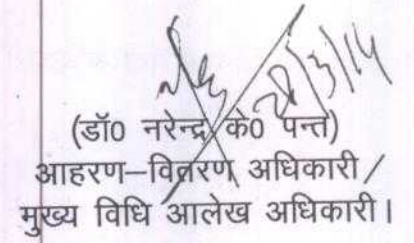 (डॉ0 नरेन्द्र के0 पन्त)
आहरण–वितरण अधिकारी /
मुख्य विधि आलेख अधिकारी।